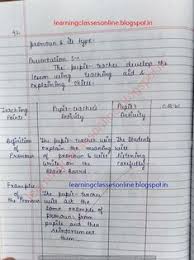 learningclassesonline.blogspot.in
42
pronoun & its type:
Presentation :-
The pupil-teacher develop the
lesson using teaching aid &
explaining skill.
learningclassesonline.blogspot.in
Teaching Pupil-teacher's Pupil's C.B.W
Points Activity Activity
Definition The pupil-teacher will The Students
of explain the meaning will
Pronoun of pronoun & write listening
will on the carefully
black-board
Example The pupil-teacher
of will ask the
the Pronoun some example of
pronoun from
pupils and then
reinforcement
them
learningclassesonline.blogspot.in